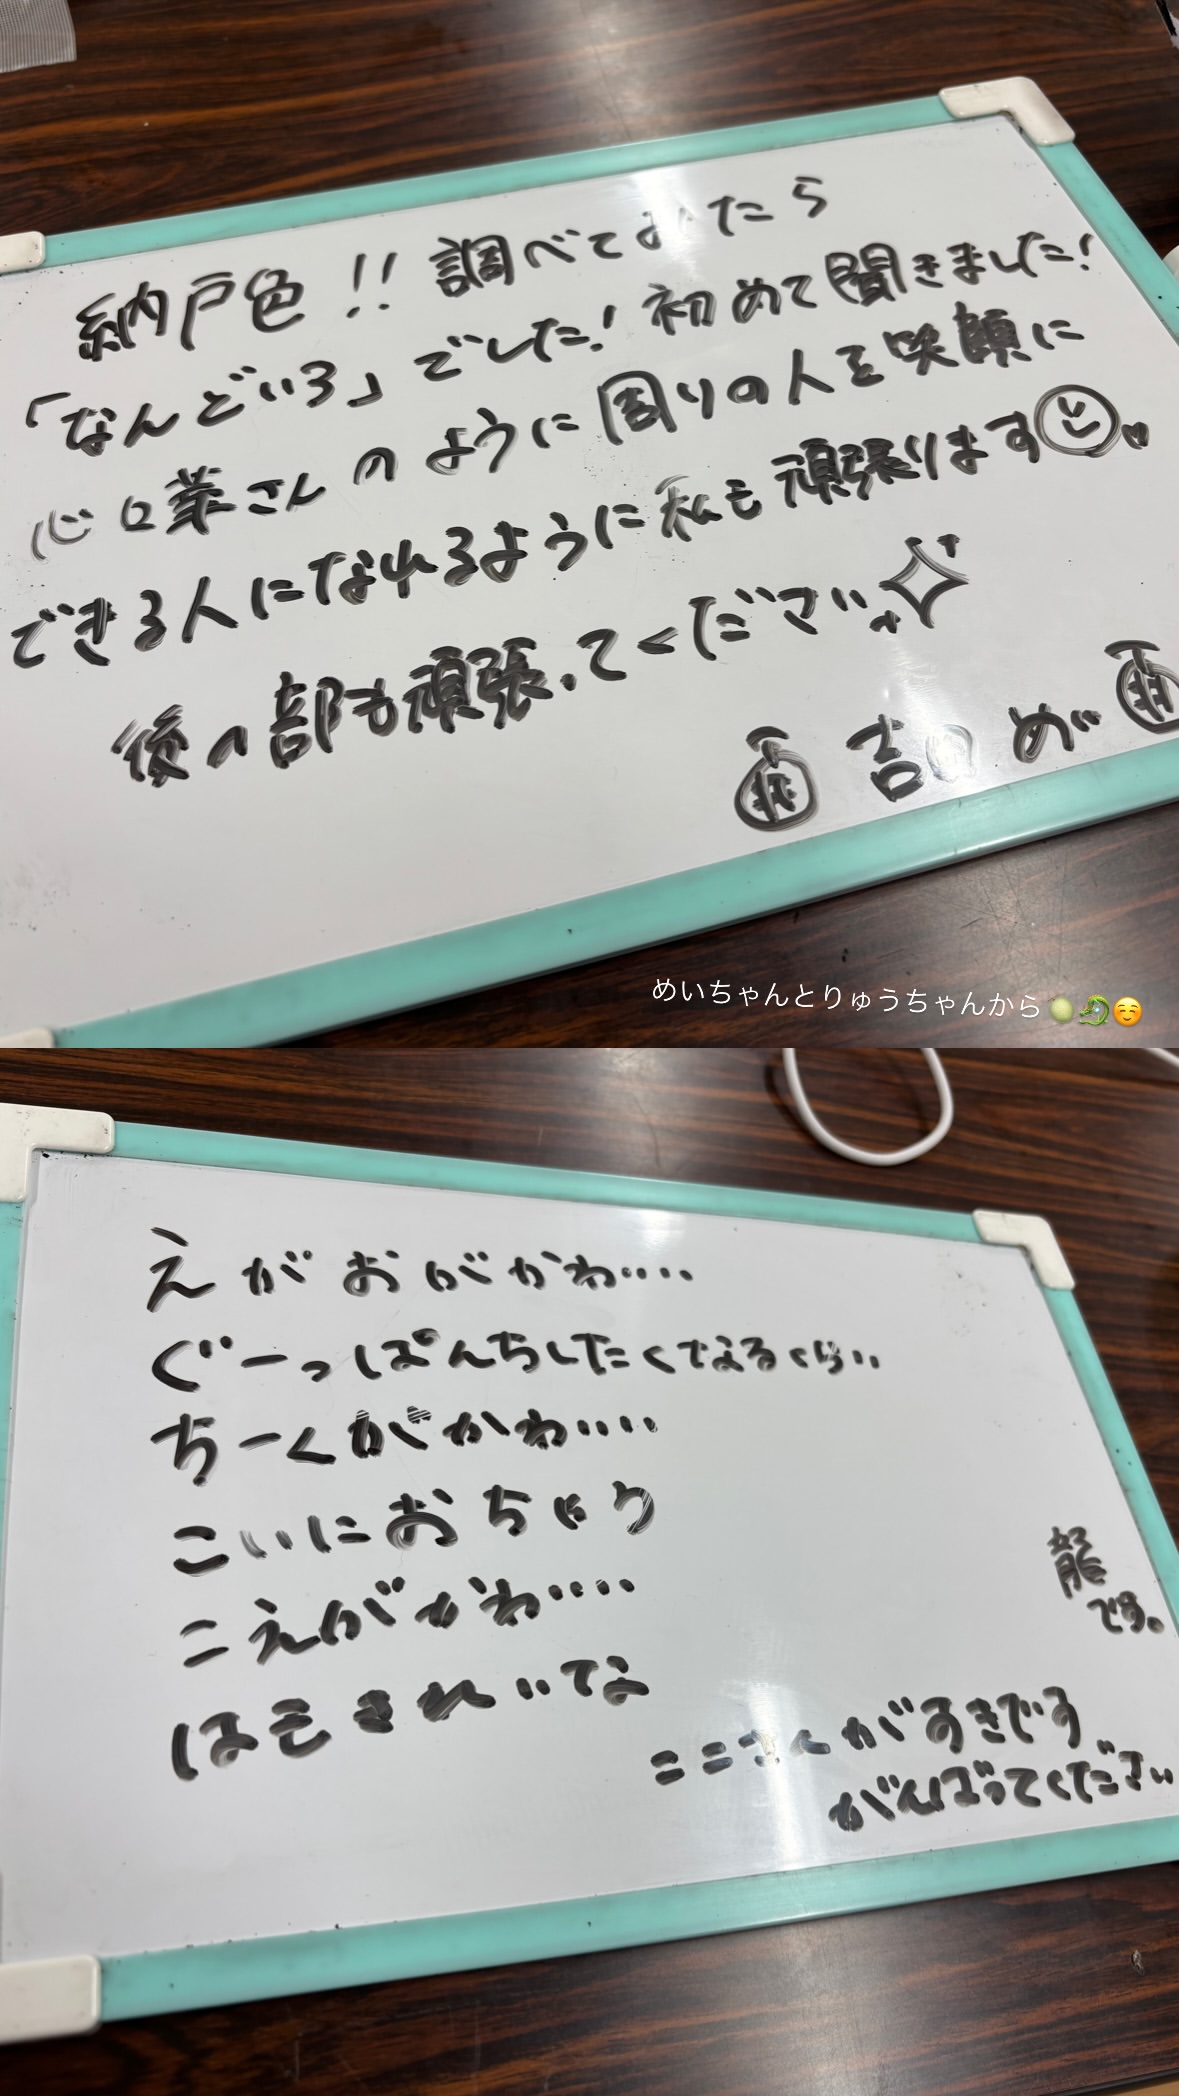 納戸色!! 調べてみたら
「なんどいろ」でした! 初めて聞きました!
心口葉さんのように周りの人を笑顔に
できる人になれるように私も頑張ります
後の部も頑張ってください
吉田 めい
めいちゃんとりゅうちゃんから🍈🐉☺️
えがおがかわ‥‥
ぐーっぱんちしたくなるくらい
ちーくがかわ‥‥
こいにおちゃう
こえがかわ‥‥
はもきれいな
龍
です。
ここさんがすきです
がんばってください